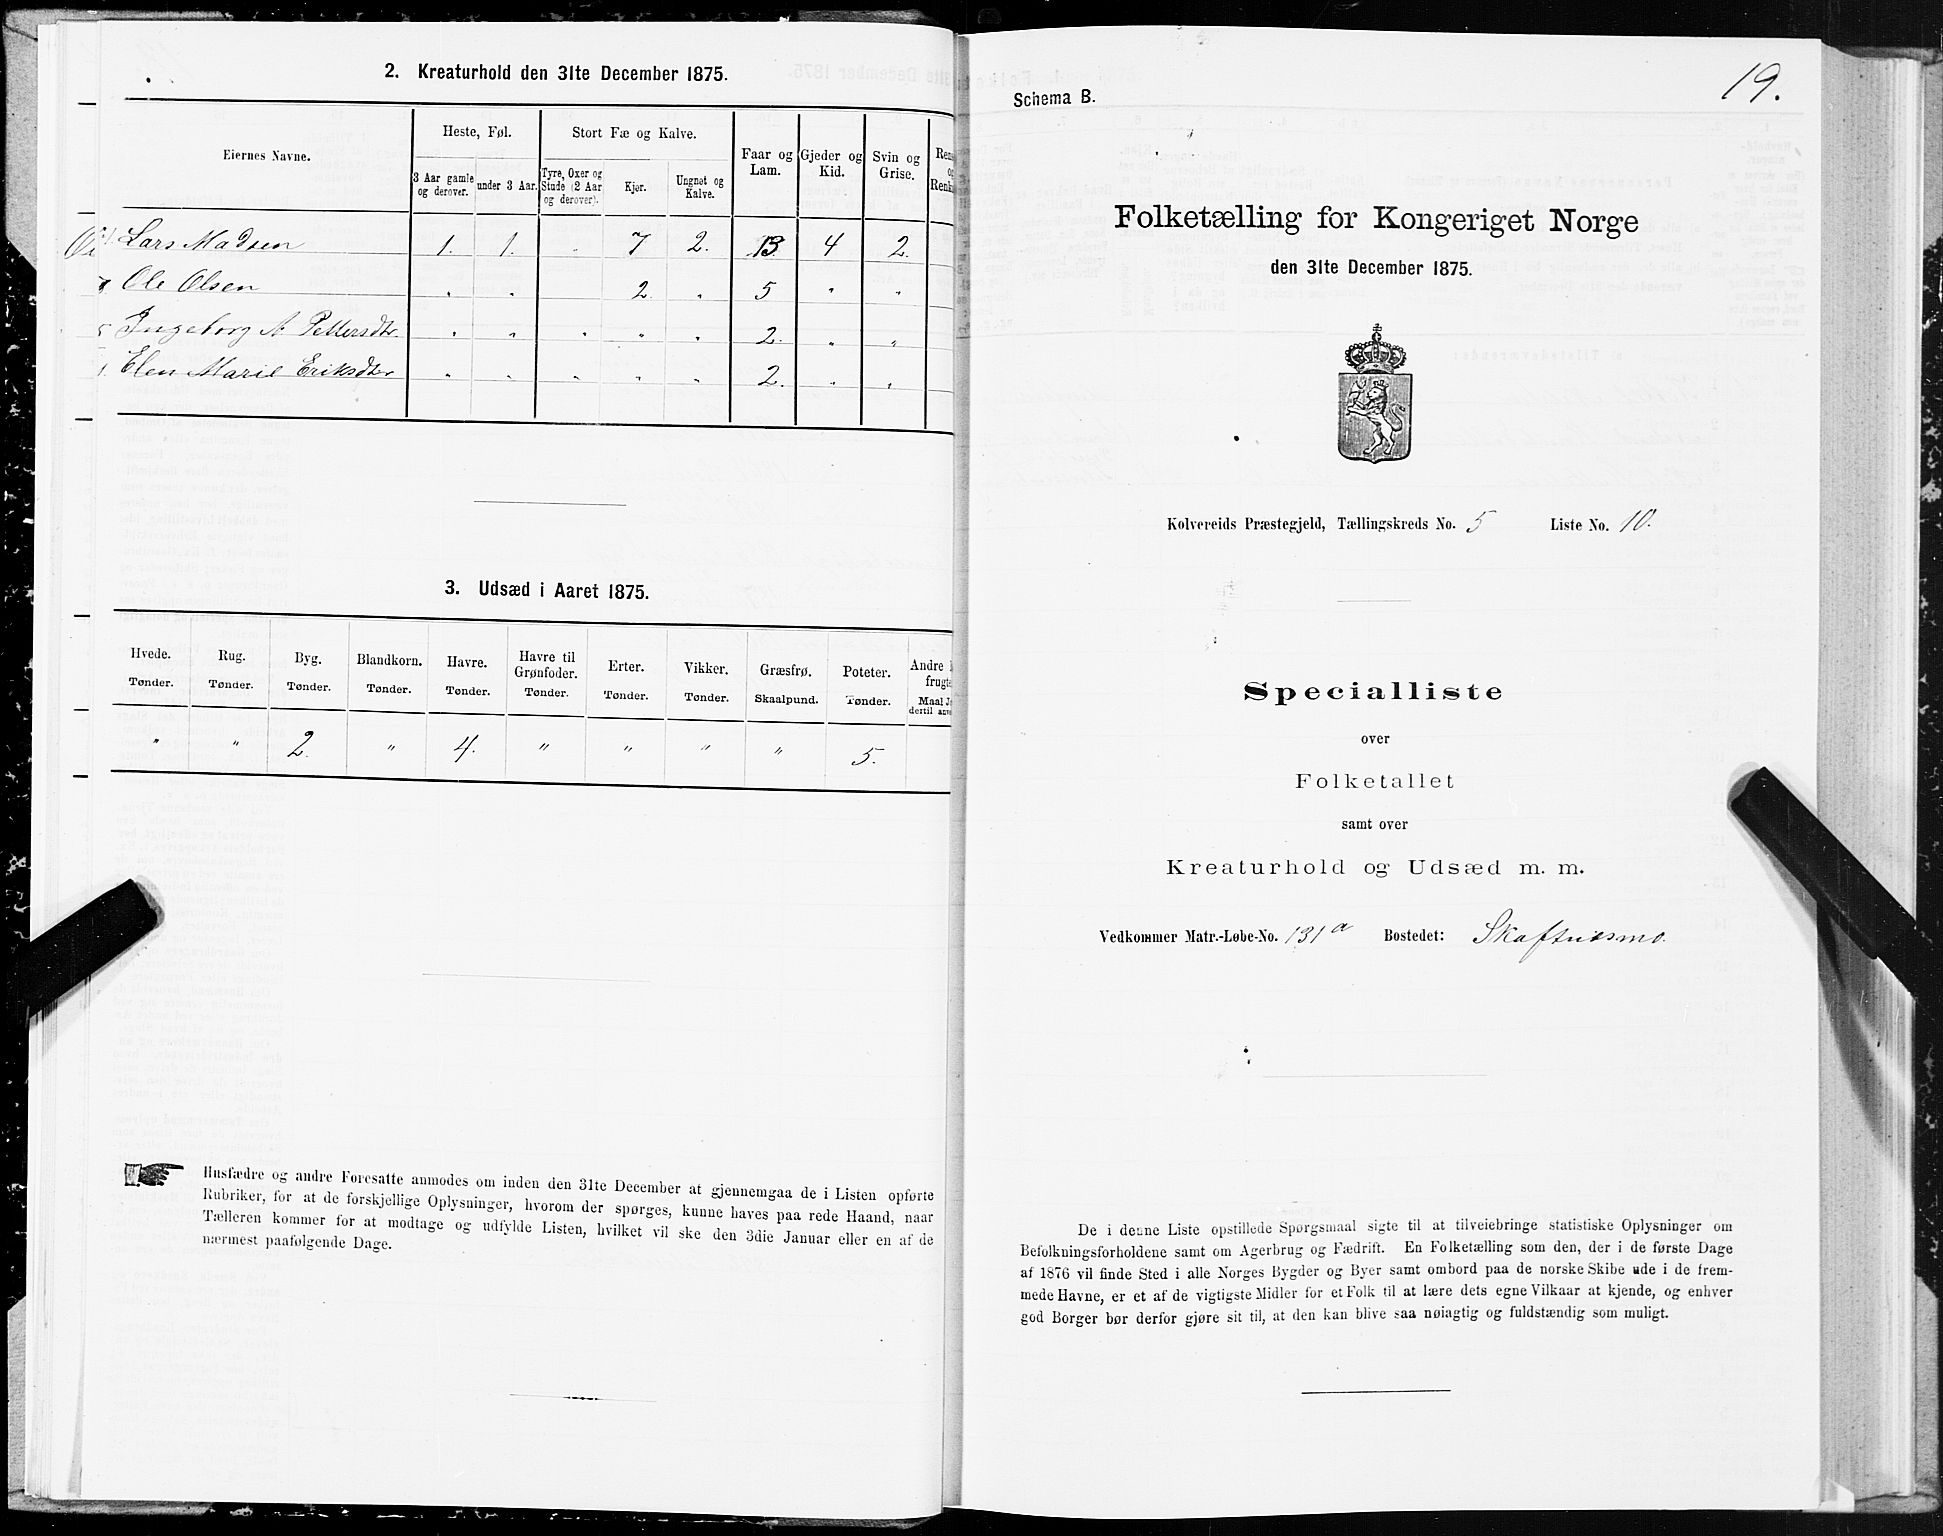 2. Kreaturhold den 31te December 1875.
Eiernes Navne.
Heste, Føl.
Stort Fæ og Kalve.
Faar og Lam.
Gjeder og Kid.
Svin og Grise.
3 Aar gamle og derover.
under 3 Aar.
Tyre, Oxer og Stude (2 Aar og derover).
Kjør.
Ungnøt og Kalve.
Lars Madsen 1. 1. „ 7 2. 13. 4 2.
Ole Olsen „ „ 2. „ 5 „ „
Ingeborg A. Pettersdtr. „ „ „ „ „ 2. „ „
Elen Marie Eriksdtr „ „ „ „ „ 2. „ „
3. Udsæd i Aaret 1875.
Hvede. Rug. Byg. Blandkorn. Havre. Havre til Grønfoder. Erter. Vikker. Græsfrø. Poteter. Andre
Tønder. Tønder. Tønder. Tønder. Tønder. Tønder. Tønder. Tønder. Skaalpund. Tønder. Maal
„ „ 2. „ 4. „ „ „ „ 5.
Husfædre og andre Foresatte anmodes om inden den 31te December at gjennemgaa de i Listen opførte
Rubriker, for at de forskjellige Oplysninger, hvorom der spørges, kunne haves paa rede Haand, naar
Tælleren kommer for at modtage og udfylde Listen, hvilket vil ske den 3die Januar eller en af de
nærmest paafølgende Dage.
19.
Schema B.
Folketælling for Kongeriget Norge
den 31te December 1875.
Kolvereids Præstegjeld, Tællingskreds No. 5 Liste No. 10.
Specialliste
over
Folketallet
samt over
Kreaturhold og Udsæd m. m.
Vedkommer Matr.-Løbe-No. 131a Bostedet: Skaftnesmo.
De i denne Liste opstillede Spørgsmaal sigte til at tilveiebringe statistiske Oplysninger om
Befolkningsforholdene samt om Agerbrug og Fædrift. En Folketælling som den, der i de første Dage
af 1876 vil finde Sted i alle Norges Bygder og Byer samt ombord paa de norske Skibe ude i de frem-
mede Havne, er et af de vigtigste Midler for et Folk til at lære dets egne Vilkaar at kjende, og enhver
god Borger bør derfor gjøre sit til, at den kan blive saa nøiagtig og fuldstændig som muligt.